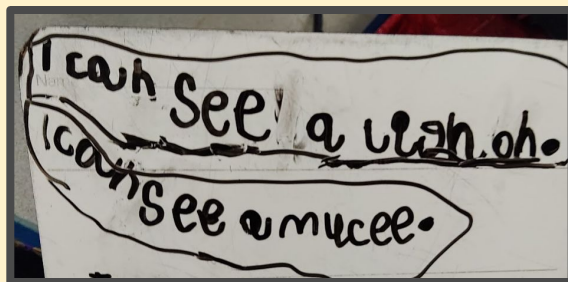 I can see a vigh.oh.
I can see a mucee.